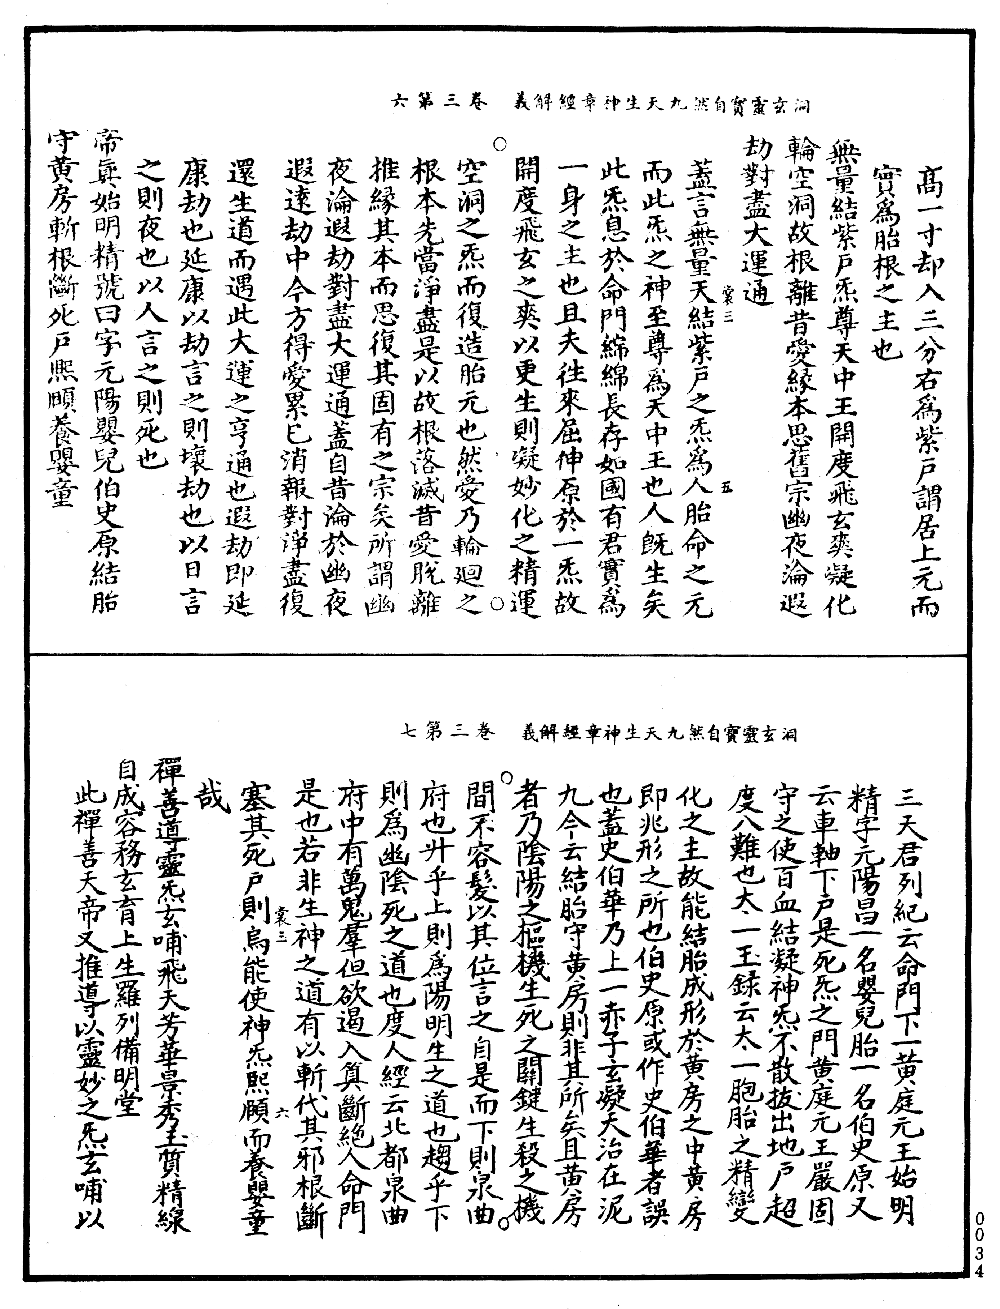 洞玄靈寶自然九天生神章經解義　卷三第六
高一寸却入三分右爲紫戶謂居上元而
實爲胎根之主也
無量結紫戶炁尊天中王開度飛玄爽凝化
輪空洞故根離昔愛緣本思舊宗幽夜淪遐
劫對盡大運通
裳三　五
蓋言無量天結紫戶之炁爲人胎命之元
而此炁之神至尊爲天中王也人旣生矣
此炁息於命門綿綿長存如國有君實爲
一身之主也且夫往來屈伸原於一炁故
開度飛玄之爽以更生則凝妙化之精運
空洞之炁而復造胎元也然愛乃輪廻之
根本先當淨盡是以故根落滅昔愛脫離
推緣其本而思復其固有之宗矣所謂幽
夜淪遐劫對盡大運通蓋自昔淪於幽夜
遐遠劫中今方得愛累已消報對淨盡復
還生道而遇此大運之亨通也遐劫即延
康劫也延康以劫言之則壞劫也以日言
之則夜也以人言之則死也
帝眞始明精號曰字元陽嬰兒伯史原結胎
守黃房斬根斷死戶熙頤養嬰童
洞玄靈寶自然九天生神章經解義　卷三第七
三天君列紀云命門下一黃庭元王始明
精字元陽昌一名嬰兒胎一名伯史原又
云車軸下戶是死炁之門黃庭元王嚴固
守之使百血結凝神炁不散拔出地戶超
度八難也太一玉錄云太一胞胎之精變
化之主故能結胎成形於黃房之中黃房
即兆形之所也伯史原或作史伯華者誤
也蓋史伯華乃上一赤子玄凝天治在泥
九今云結胎守黃房則非其所矣且黃房
者乃陰陽之樞機生死之關鍵生殺之機
間不容髮以其位言之自是而下則泉曲
府也升乎上則爲陽明生之道也趨乎下
則爲幽陰死之道也度人經云北都泉曲
府中有萬鬼羣但欲遏人筭斷絕人命門
是也若非生神之道有以斬伐其邪根斷
塞其死戶則烏能使神炁熙頤而養嬰童
裳三　六
哉
禪善導靈炁玄哺飛天芳華景秀玉質精線
自成容務玄育上生羅列備明堂
此禪善天帝又推導以靈妙之炁玄哺以
0034